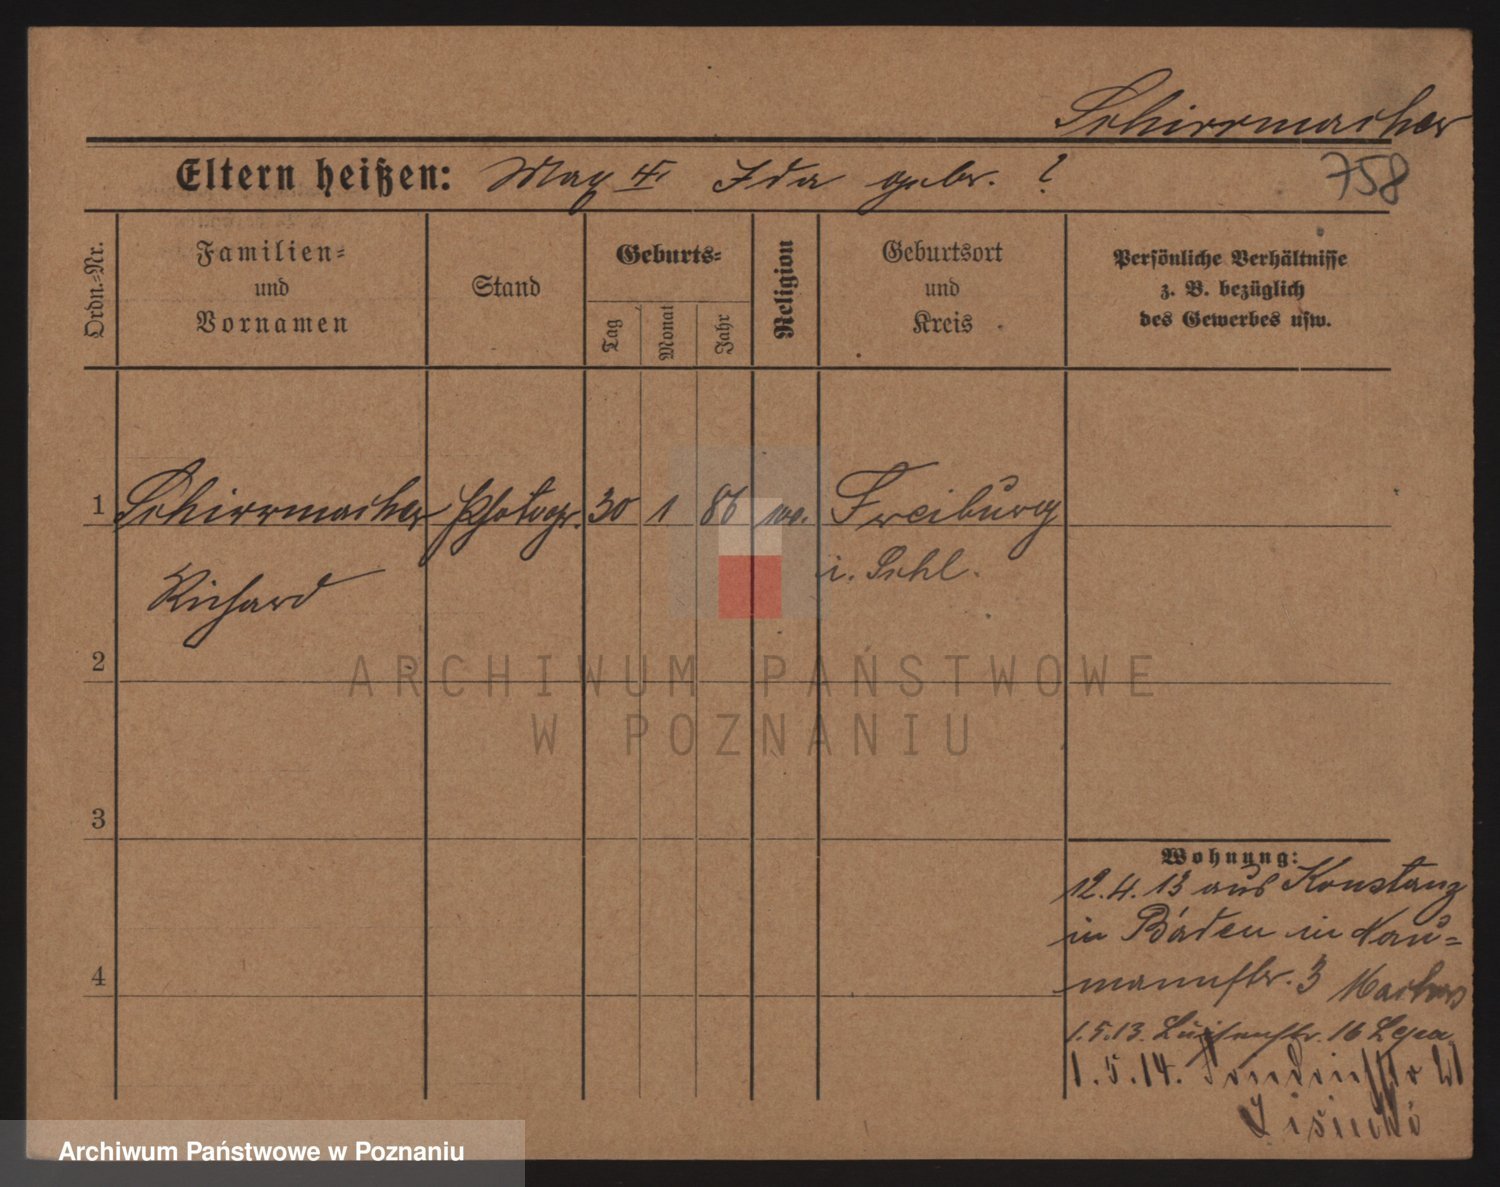 Schirrmacher
Eltern heißen: Max u. Ida gebr. ?
758
Ordn.-Nr.
Familien-
und
Vornamen
Stand
Geburts-
Tag
Monat
Jahr
Religion
Geburtsort
und
Kreis
Persönliche Verhältnisse
z. B. bezüglich
des Gewerbes usw.
1 Schirrmacher Photogr. 30 1 86 Freiburg
Richard i. Schl.
2
3
4
Wohnung:
12.4.13 aus Konstanz
in Baden in Nau-
mannstr. 3
1.5.13. Luisenstr. 16
1.5.14.
ARCHIWUM PAŃSTWOWE
W POZNANIU
Archiwum Państwowe w Poznaniu